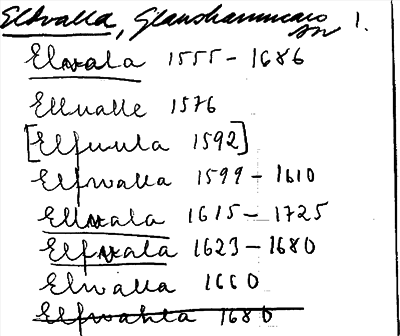 Elfvalla, Glanshammars sn 1.
Elvala 1555-1686
Ellualle 1576
[Elfuula 1592]
Elfwalla 1599-1610
Ellvala 1615-1725
Elfvala 1623-1680
Elwalla 1660
Elfwahla 1680